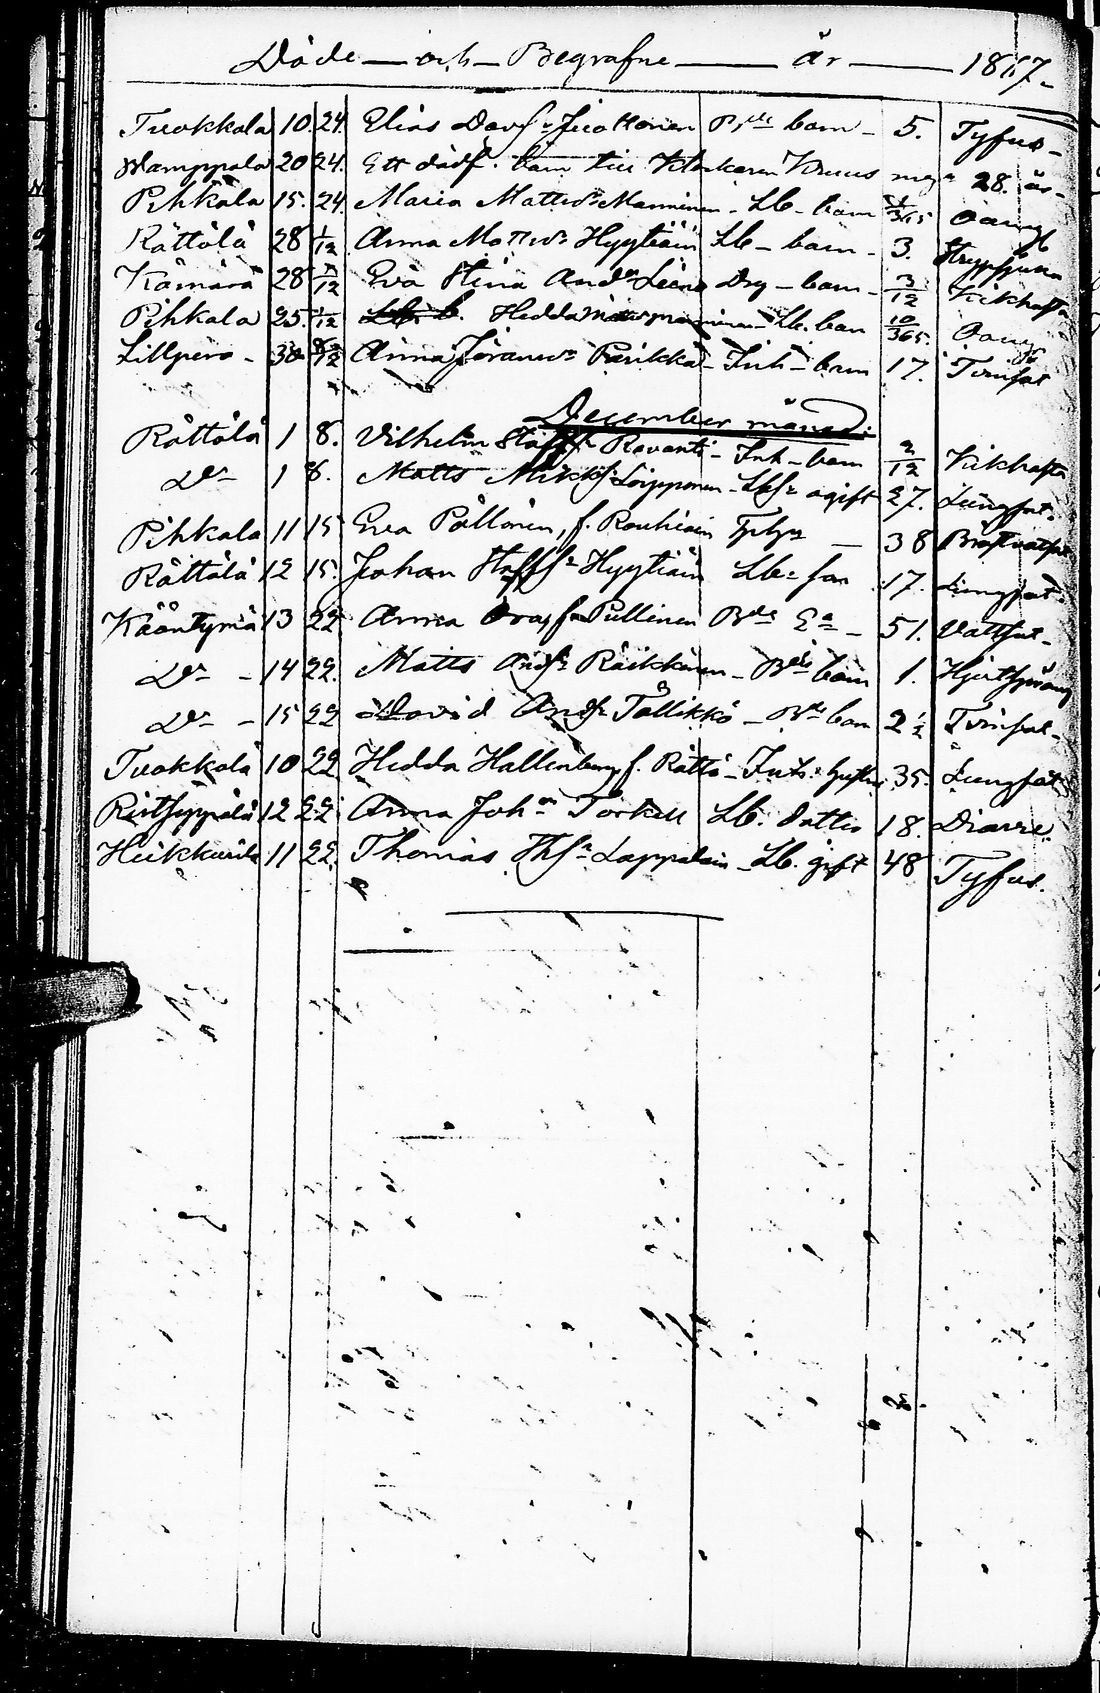 Döde — och — Begrafne — år — 1867 -
Tuokkala 10. 24. Elias Davs: Juottonen barn - 5. Tyfus -
Mamppala 20 24. Ett dödf. barn till Klockaren Kruus 28. år -
Pihkala 15. 24. Maria Matts: Manninen - Lb - barn 1/365
Rättölä 28 1/12 Anna Matts: Hyytiäin Lb - barn - 3.
Kämärä 28 1/12 Eva Stina And: - barn - 3/12 Kikhosta
Pihkala 25. 1/12 Hedda - Lb. barn 10/365.
Lillpero - 30 Anna Parikka - Inh - barn 17. Tvinsot
December månad:
Rättölä 1 8. Vilhelm Staff: Ravanti - Inh - barn 2/12 Kikhosta
Do 1 8. Matts Mikks: Loipponen - ogift 27. Lungsot.
Pihkala 11 15 Eva Pöllönen, f. Rouhiain — 38
Rättölä 12 15. Johan Staffs: Hyytiäin Lb: son 17. Lungsot.
Kääntymä 13 22 Anna Pullinen Ea - 51. Vattsot -
Do - 14 22. Matts Ands: Räikkönen - barn 1.
Do - 15 22 David Ands: Töllikkö - barn 2 1/2 Tvinsot -
Tuokkola 10 22 Hedda Hallenberg f. Rättö - Inh: hustru 35. Lungsot
Riitseppälä 12 22 Anna Joh:n Torkell Lb. dotter 18. Diarre.
Heikkurila 11 22. Thomas Ths: Lappalain - Lb. gift 48 Tyfus.